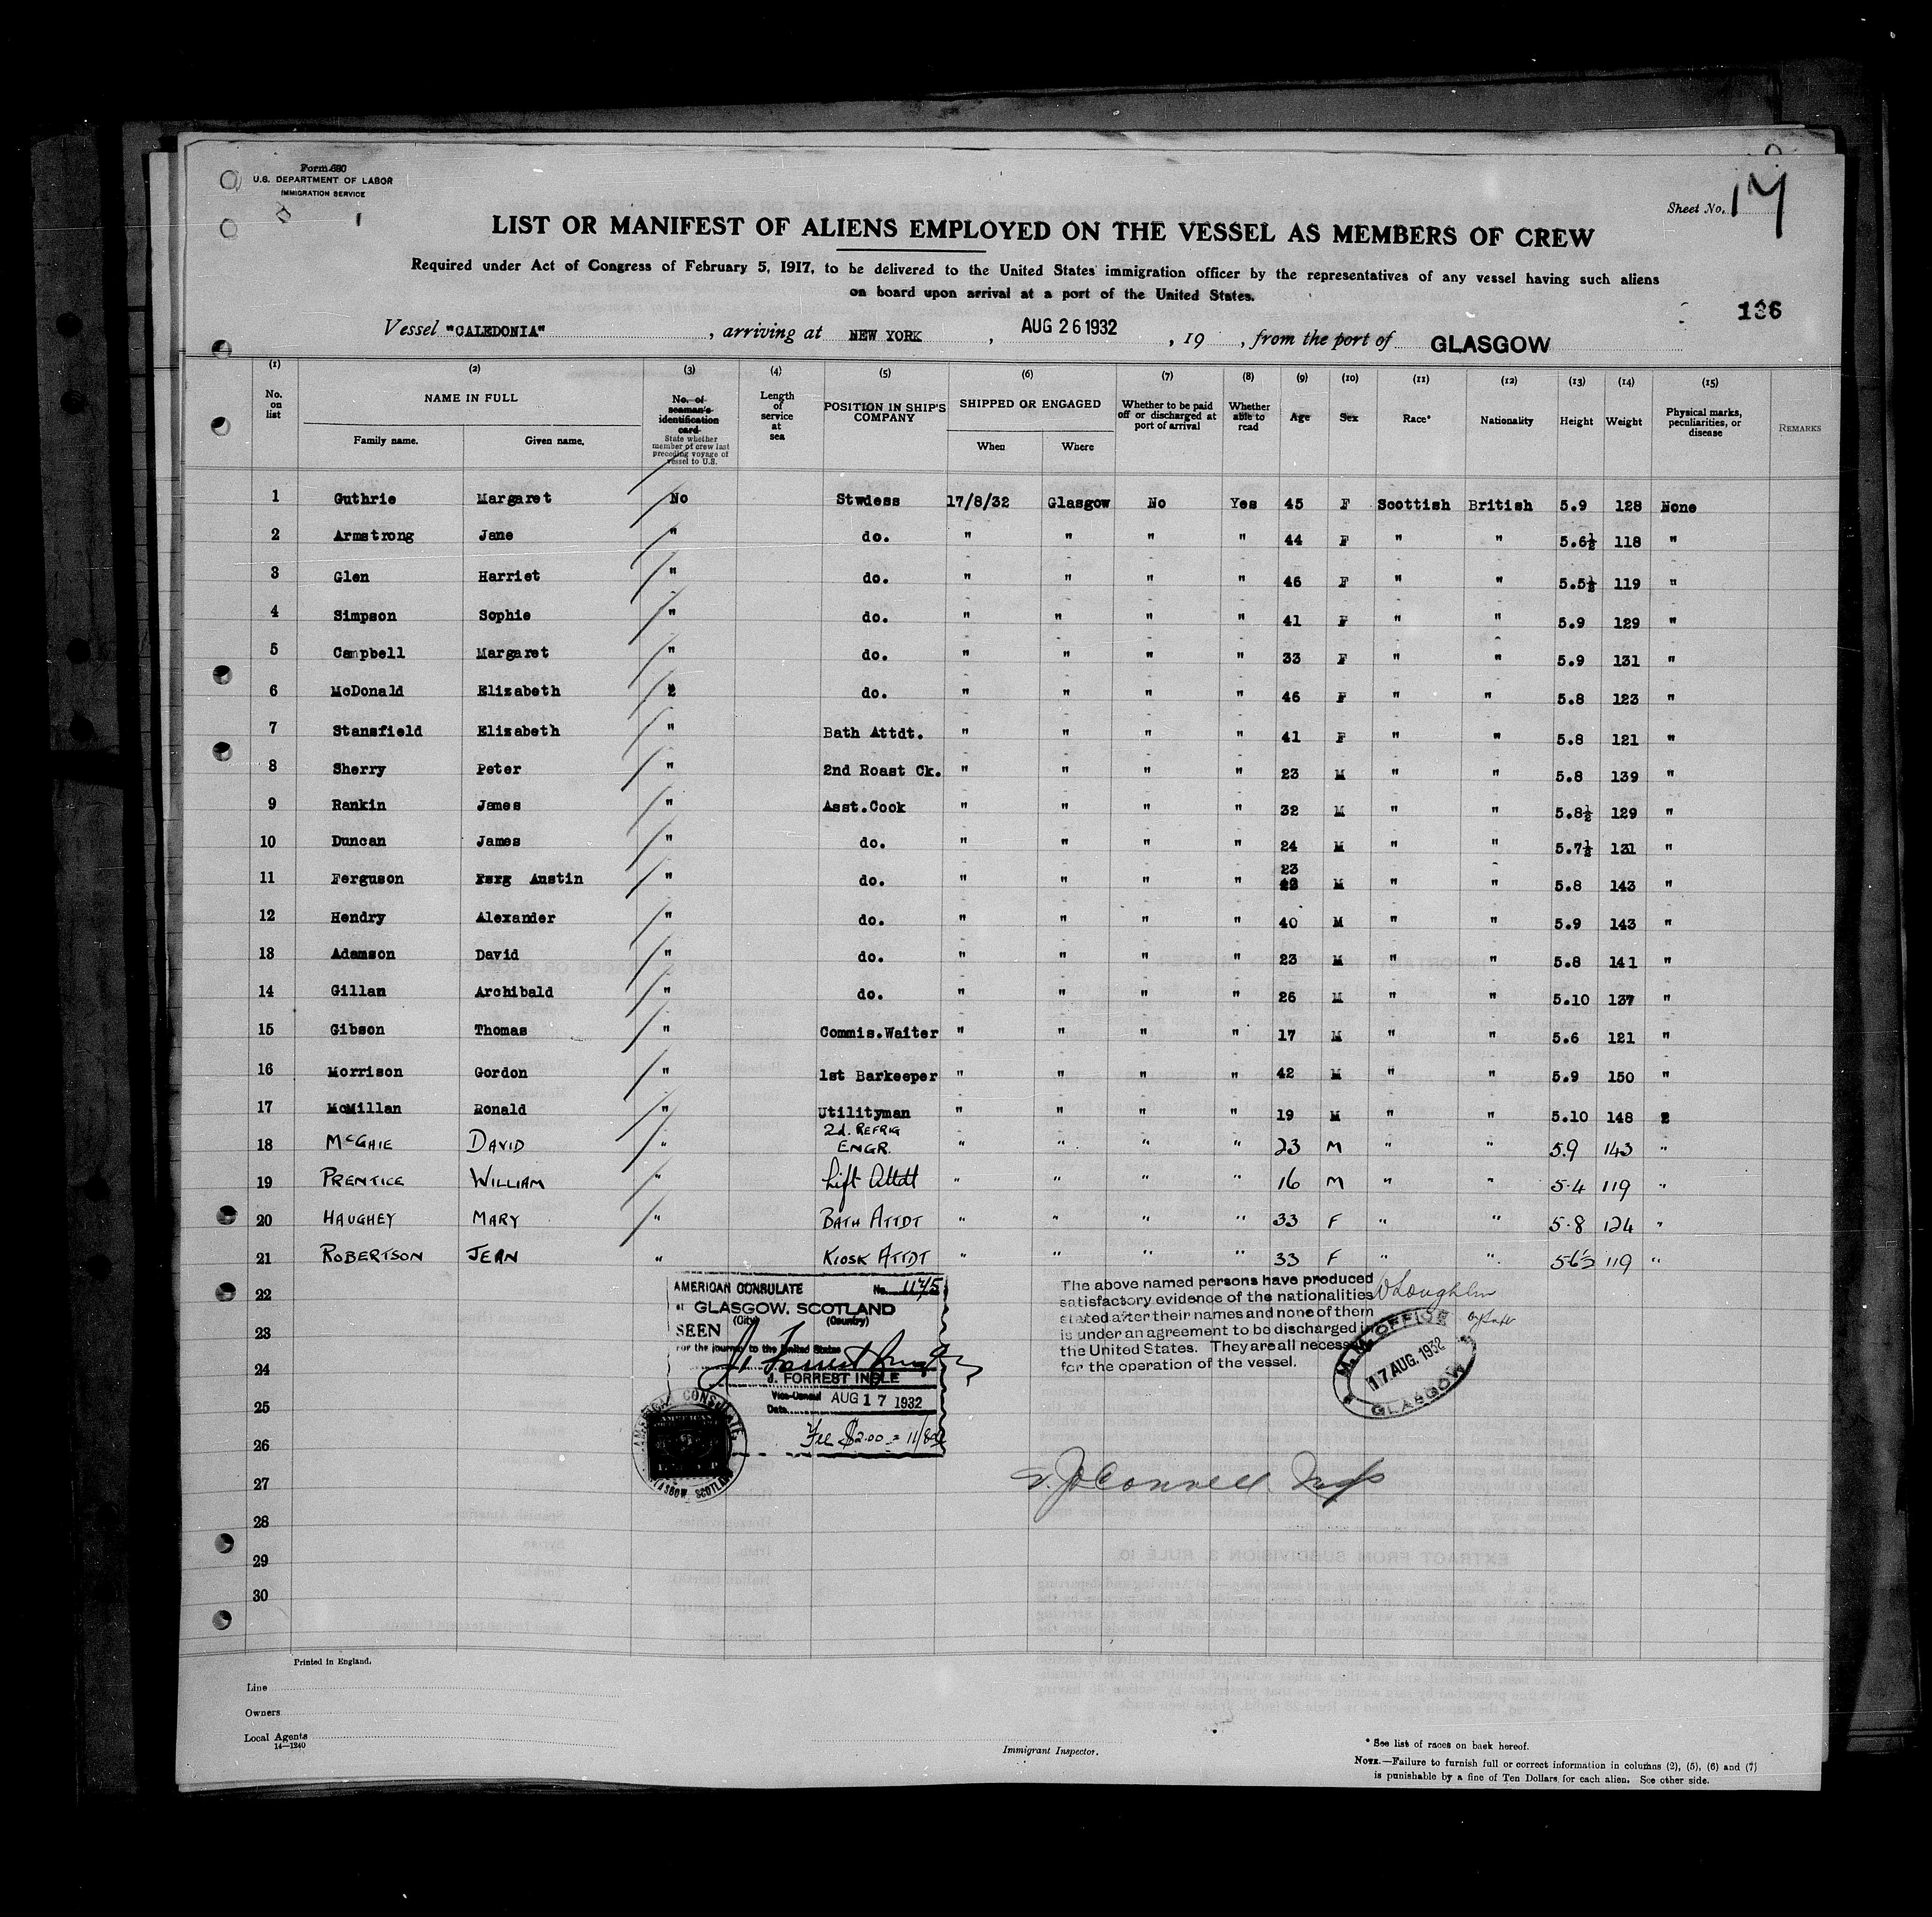 Form 680
U.S. DEPARTMENT OF LABOR
IMMIGRATION SERVICE
Sheet No. 14
LIST OR MANIFEST OF ALIENS EMPLOYED ON THE VESSEL AS MEMBERS OF CREW
Required under Act of Congress of February 5, 1917, to be delivered to the United States immigration officer by the representatives of any vessel having such aliens
on board upon arrival at a port of the United States.
136
Vessel "CALEDONIA", arriving at NEW YORK, AUG 26 1932, 19 , from the port of GLASGOW
(1) (2) (3) (4) (5) (6) (7) (8) (9) (10) (11) (12) (13) (14) (15)
No. on list
NAME IN FULL
Family name. Given name.
No. of seaman's identification card
State whether member of crew last preceding voyage of vessel to U.S.
Length of service at sea
POSITION IN SHIP'S COMPANY
SHIPPED OR ENGAGED
When Where
Whether to be paid off or discharged at port of arrival
Whether able to read
Age Sex Race* Nationality Height Weight
Physical marks, peculiarities, or disease
REMARKS
1 Guthrie Margaret No Stwdess 17/8/32 Glasgow No Yes 45 F Scottish British 5.9 128 None
2 Armstrong Jane " do. " " " " 44 F " " 5.6½ 118 "
3 Glen Harriet " do. " " " " 46 F " " 5.5½ 119 "
4 Simpson Sophie " do. " " " " 41 F " " 5.9 129 "
5 Campbell Margaret " do. " " " " 33 F " " 5.9 131 "
6 McDonald Elizabeth 2 do. " " " " 46 F " " 5.8 123 "
7 Stansfield Elizabeth " Bath Attdt. " " " " 41 F " " 5.8 121 "
8 Sherry Peter " 2nd Roast Ck. " " " " 23 M " " 5.8 139 "
9 Rankin James " Asst.Cook " " " " 32 M " " 5.8½ 129 "
10 Duncan James " do. " " " " 24 M " " 5.7½ 131 "
11 Ferguson Austin " do. " " " " 23 M " " 5.8 143 "
12 Hendry Alexander " do. " " " " 40 M " " 5.9 143 "
13 Adamson David " do. " " " " 23 M " " 5.8 141 "
14 Gillan Archibald " do. " " " " 26 M " " 5.10 137 "
15 Gibson Thomas " Commis.Waiter " " " " 17 M " " 5.6 121 "
16 Morrison Gordon " 1st Barkeeper " " " " 42 M " " 5.9 150 "
17 McMillan Ronald " Utilityman " " " " 19 M " " 5.10 148 2
18 McGHIE DAVID " 2d. REFRIG ENGR. " " " " 23 M " " 5.9 143 "
19 PRENTICE WILLIAM " Lift Attdt " " " " 16 M " " 5.4 119 "
20 HAUGHEY MARY " BATH ATTDT " " " " 33 F " " 5.8 124 "
21 ROBERTSON JEAN " KIOSK ATTDT " " " " 33 F " " 5.6½ 119 "
22
23
24
25
26
27
28
29
30
AMERICAN CONSULATE No. 1175
at GLASGOW, SCOTLAND
(City) (Country)
SEEN
For the journey to the United States
J. Forrest Ingle
J. FORREST INGLE
Vice-Consul
Date AUG 17 1932
Fee $2.00 =
AMERICAN CONSULATE, GLASGOW, SCOTLAND
The above named persons have produced
satisfactory evidence of the nationalities
stated after their names and none of them
is under an agreement to be discharged in
the United States. They are all necessary
for the operation of the vessel.
O'Loughlin
M.M. OFFICE
17 AUG. 1932
GLASGOW
Printed in England.
Line
Owners
Local Agents
14—1240
Immigrant Inspector.
* See list of races on back hereof.
NOTE.—Failure to furnish full or correct information in columns (2), (5), (6) and (7)
is punishable by a fine of Ten Dollars for each alien. See other side.